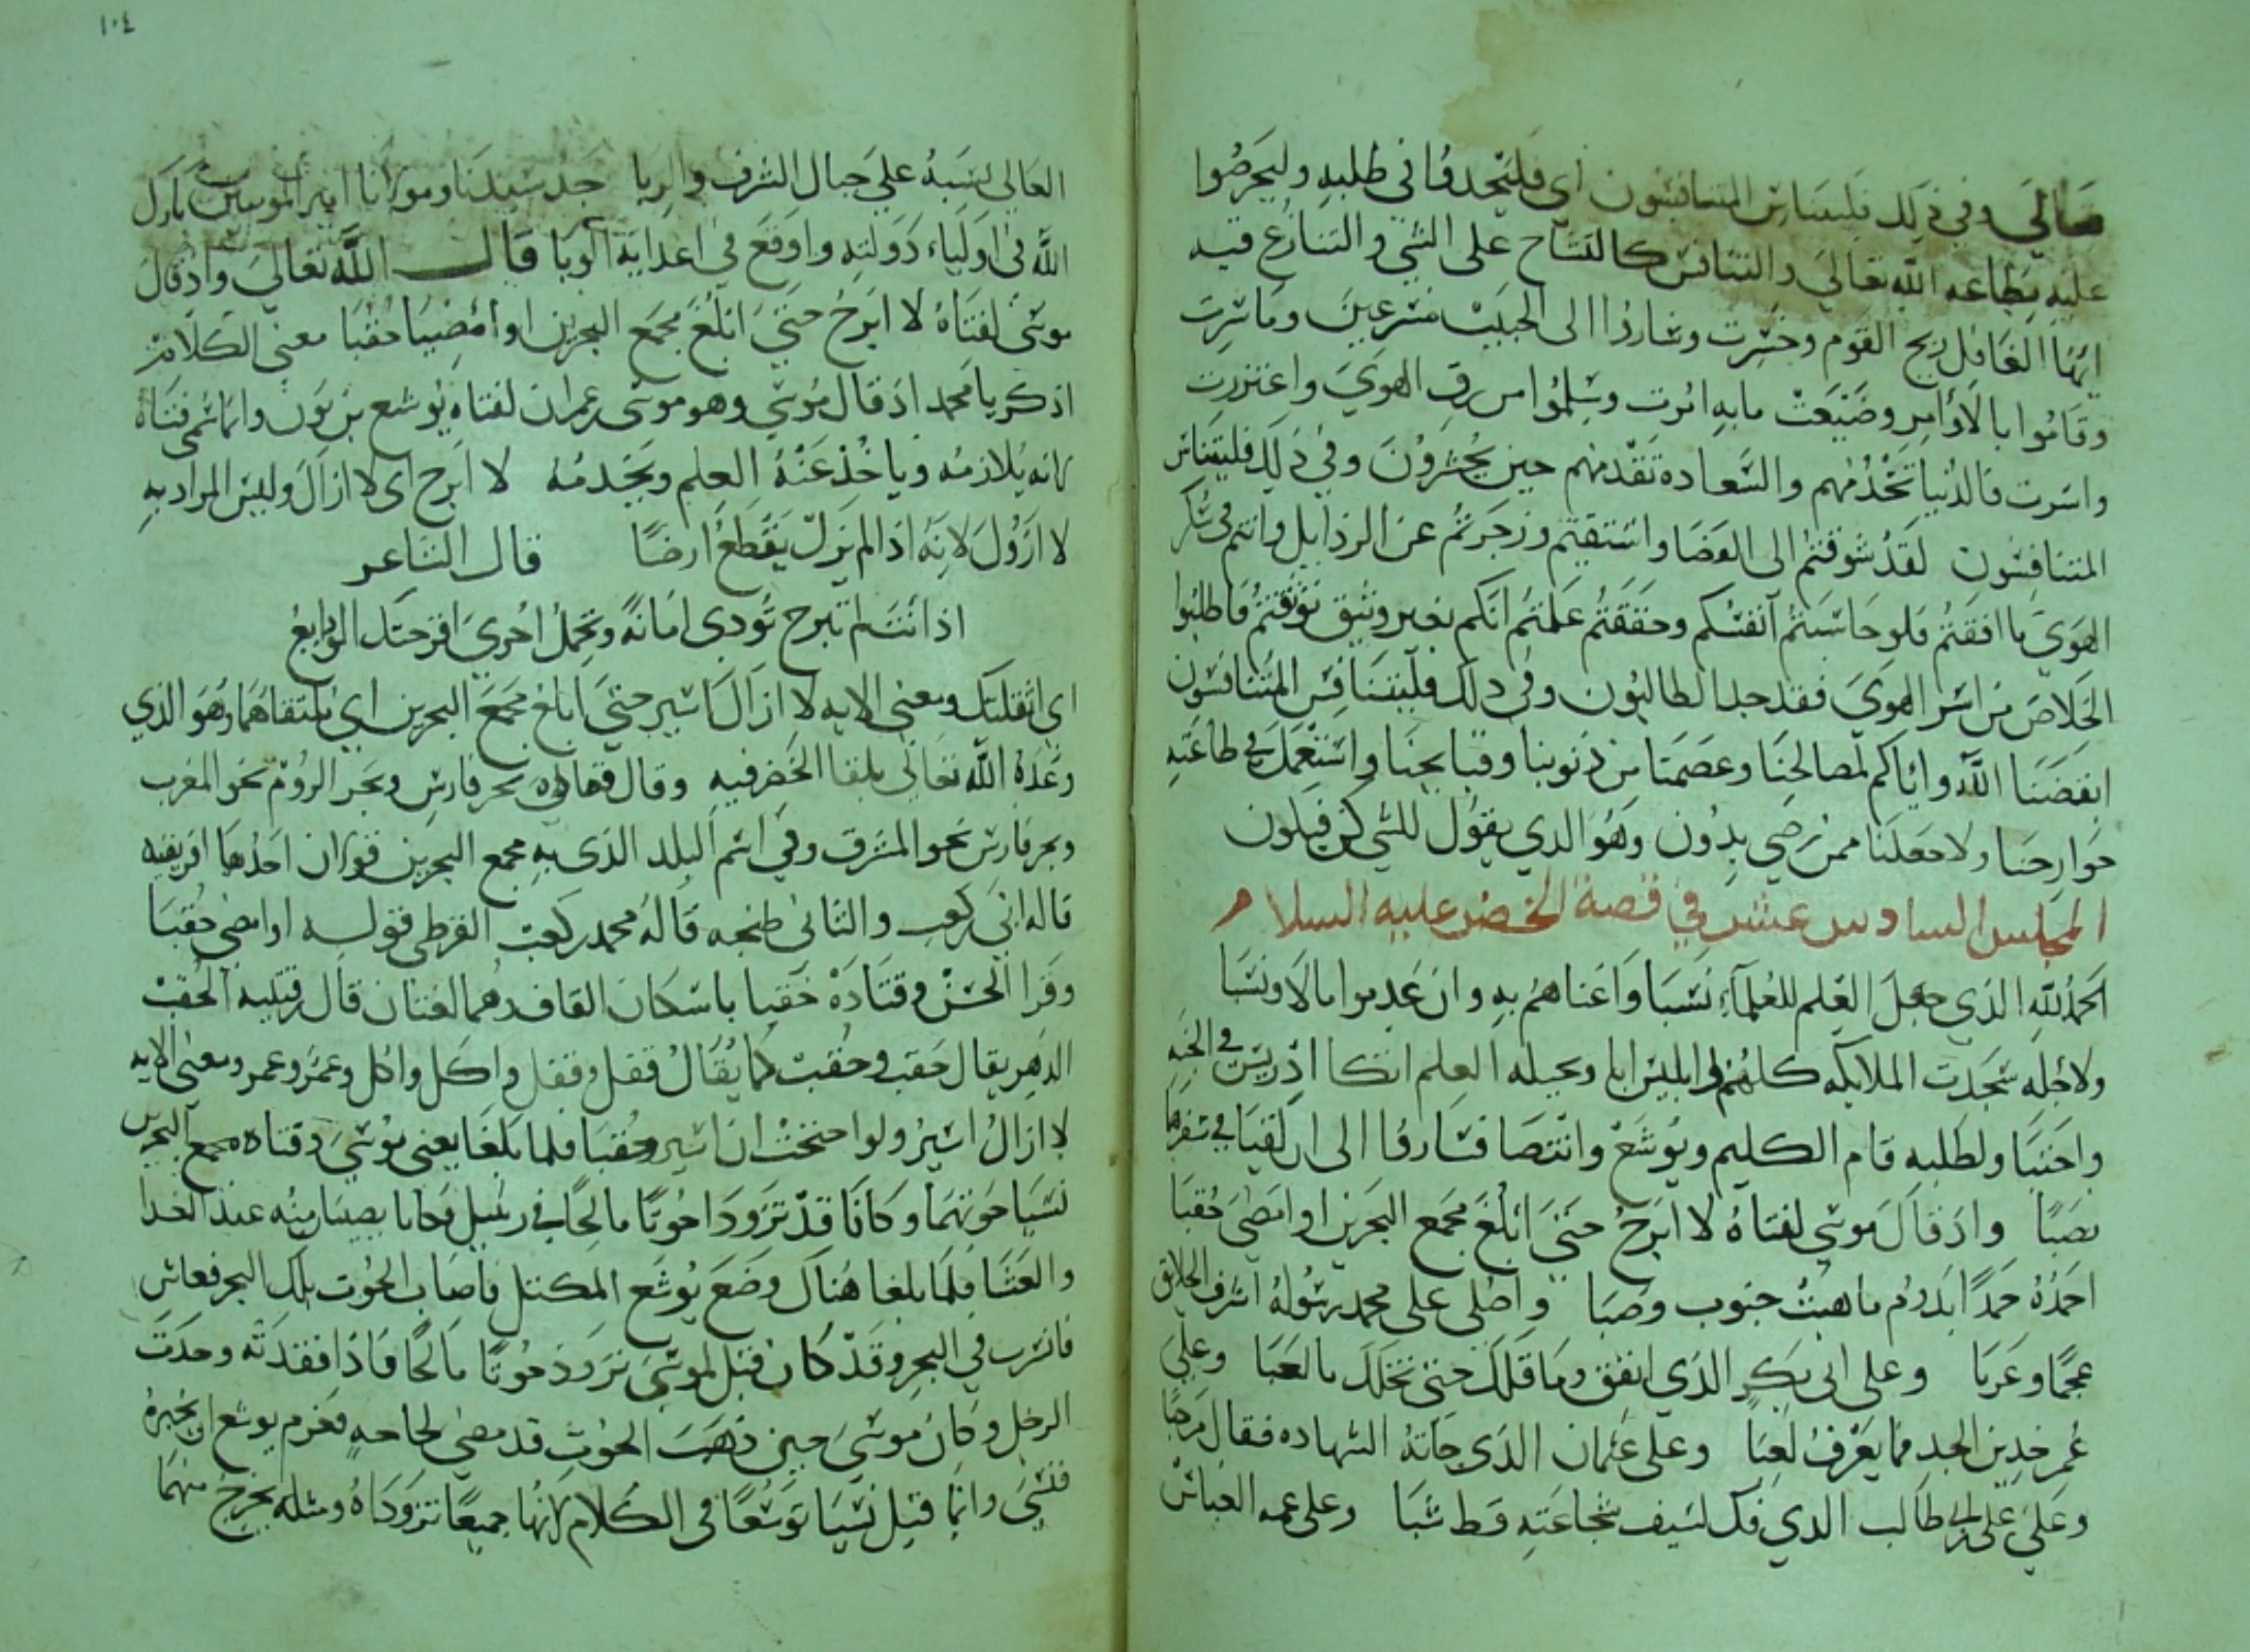 تعالى وفي ذلك فليتنافس المتنافسون اي فليجدوا في طلبه وليحرصوا
عليه بطاعه الله تعالى والتنافس كالتشاح على الشي والتنازع فيه
ايها الغافل ربح القوم وخسرت وساروا الى الحبيب مسرعين وما سرت
وقاموا بالاوامر وضيعت ما به امرت وسلموا من رق الهوى واغتررت
واسرت فالدنيا تخدمهم والسعادة تقدمهم حين يحشرون وفي ذلك فليتنافس
المتنافسون لقد شوقتم الى الفضا واستقيتم وزجرتم عن الرذايل وانتم في سكر
الهوى ما افقتم فلو حاسبتم انفسكم وحققتم علمتم انكم بغير وثيق توثقتم فاطلبوا
الخلاص من اسر الهوى فقد جد الطالبون وفي ذلك فليتنافس المتنافسون
ايقضنا الله واياكم لمصالحنا وعصمنا من ذنوبنا وقبايحنا واستعمل في طاعته
جوارحنا ولا جعلنا ممن رضي بدون وهو الذي يقول للشي كن فيكون
المجلس السادس عشر في قصة الخضر عليه السلام
الحمد لله الذي جعل العلم للعلماء نسبا واغناهم به وان عدموا مالا ونشبا
ولاجله سجدت الملايكه كلهم وابليس ابا وبحيله العلم اتكا ادريس في الجنه
واحتبا ولطلبه قام الكليم ويوشع وانتصبا فسارا الى ان لقيا في سفرهما
نصبا واذ قال موسى لفتاه لا ابرح حتى ابلغ مجمع البحرين او امضي حقبا
احمده حمدا يدوم ما هبت جنوب وصبا واصلي على محمد رسوله اشرف الخلايق
عجما وعربا وعلى ابي بكر الذي انفق وما قلل حتى تخلل بالعبا وعلى
عمر خدين الجد فما يعرف لعبا وعلى عثمان الذي جاته الشهاده فقال مرحبا
وعلى علي بن ابي طالب الذي فل لسيف شجاعته قط شبا وعلى عمه العباس
١٠٤
العالي نسبه على جبال الشرف والربا جد سيدنا ومولانا امير المومنين بارك
الله في اولياء دولته واوقع في اعدايه الوبا قال الله تعالى واذ قال
موسى لفتاه لا ابرح حتى ابلغ مجمع البحرين او امضي حقبا معنى الكلام
اذكر يا محمد اذ قال موسى وهو موسى بن عمران لفتاه يوشع بن نون وانما سمى فتاه
لانه يلازمه وياخذ عنه العلم ويخدمه لا ابرح اي لا ازال وليس المراد به
لا ازول لانه اذا لم يزل يقطع ارضا قال الشاعر
اذا انت لم تبرح تودي امانة وتحمل اخرى افرحتك الودايع
اي اثقلتك ومعنى الايه لا ازال اسير حتى ابلغ مجمع البحرين اي ملتقاهما وهو الذي
وعده الله تعالى بلقا الخضر فيه وقال قتاده بحر فارس وبحر الروم نحو المغرب
وبحر فارس نحو المشرق وفي اسم البلد الذي به مجمع البحرين قولان احدهما افريقيه
قاله ابي بن كعب والثاني طنجه قاله محمد بن كعب القرظي قوله او امضي حقبا
وقرا الحسن وقتادة حقبا باسكان القاف وهما لغتان قال ابن قتيبه الحقب
الدهر يقال حقب وحقب كما يقال قفل وقفل واكل واكل وعمر وعمر ومعنى الايه
لا ازال اسير ولو احتجت ان اسير حقبا فلما بلغا يعني موسى وفتاه مجمع البحرين
نسيا حوتهما وكانا قد تزودا حوتا مالحا في زنبيل فكانا يصيبان منه عند الغدا
والعشا فلما بلغا هناك وضع يوشع المكتل فاصاب الحوت بلل البحر فعاش
فانسرب في البحر وقد كان قيل لموسى تزود حوتا مالحا فاذا فقدته وجدت
الرجل وكان موسى حين ذهب الحوت قد مضى لحاجه فعزم يوشع ان يخبره
فنسي وانما قيل نسيا توسعا في الكلام لانهما جميعا تزوداه ومثله يخرج منهما